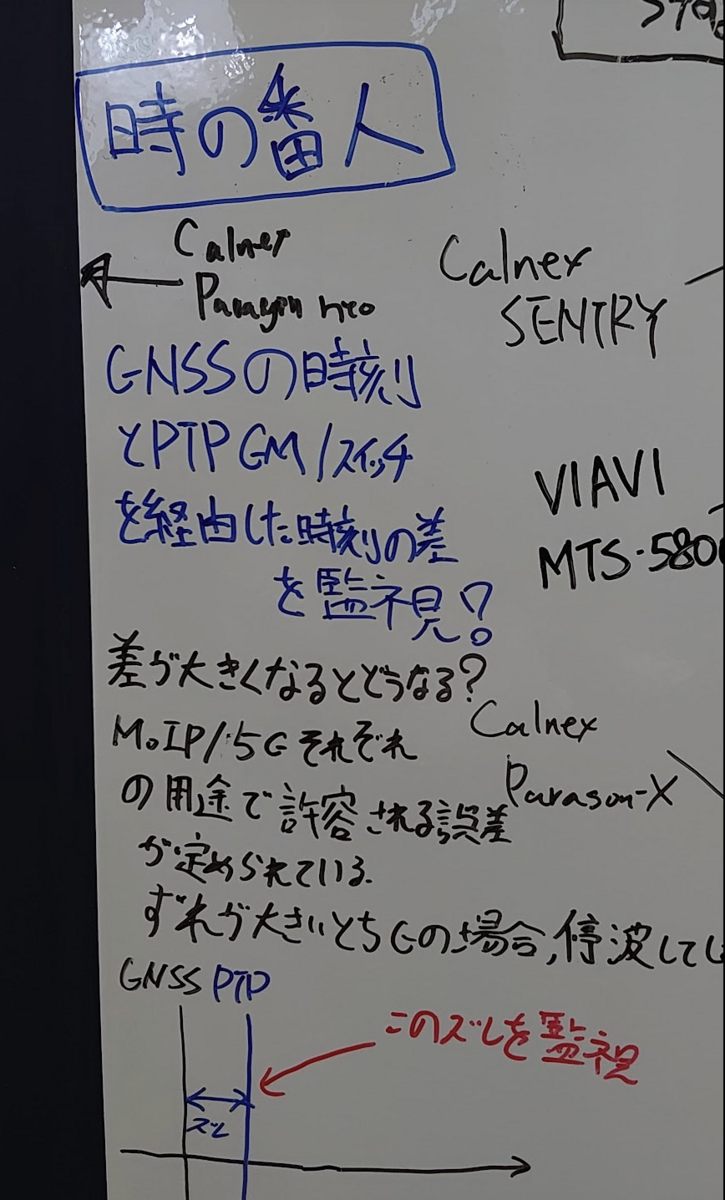 時の番人
Calnex
Paragon neo
Calnex
SENTRY
GNSSの時刻
とPTP GM/スイッチ
を経由した時刻の差
を監視!
VIAVI
MTS-580
差が大きくなるとどうなる?
MoIP/5Gそれぞれ
の用途で許容される誤差
が定められている.
ずれが大きいと5Gの場合,停波してし
Calnex
Paragon-X
GNSS PTP
このズレを監視
ズレ